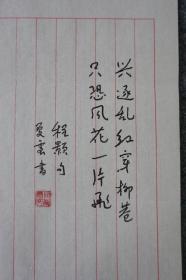 兴逐乱红穿柳巷
只恐风花一片飛
程颢句
夏雲書